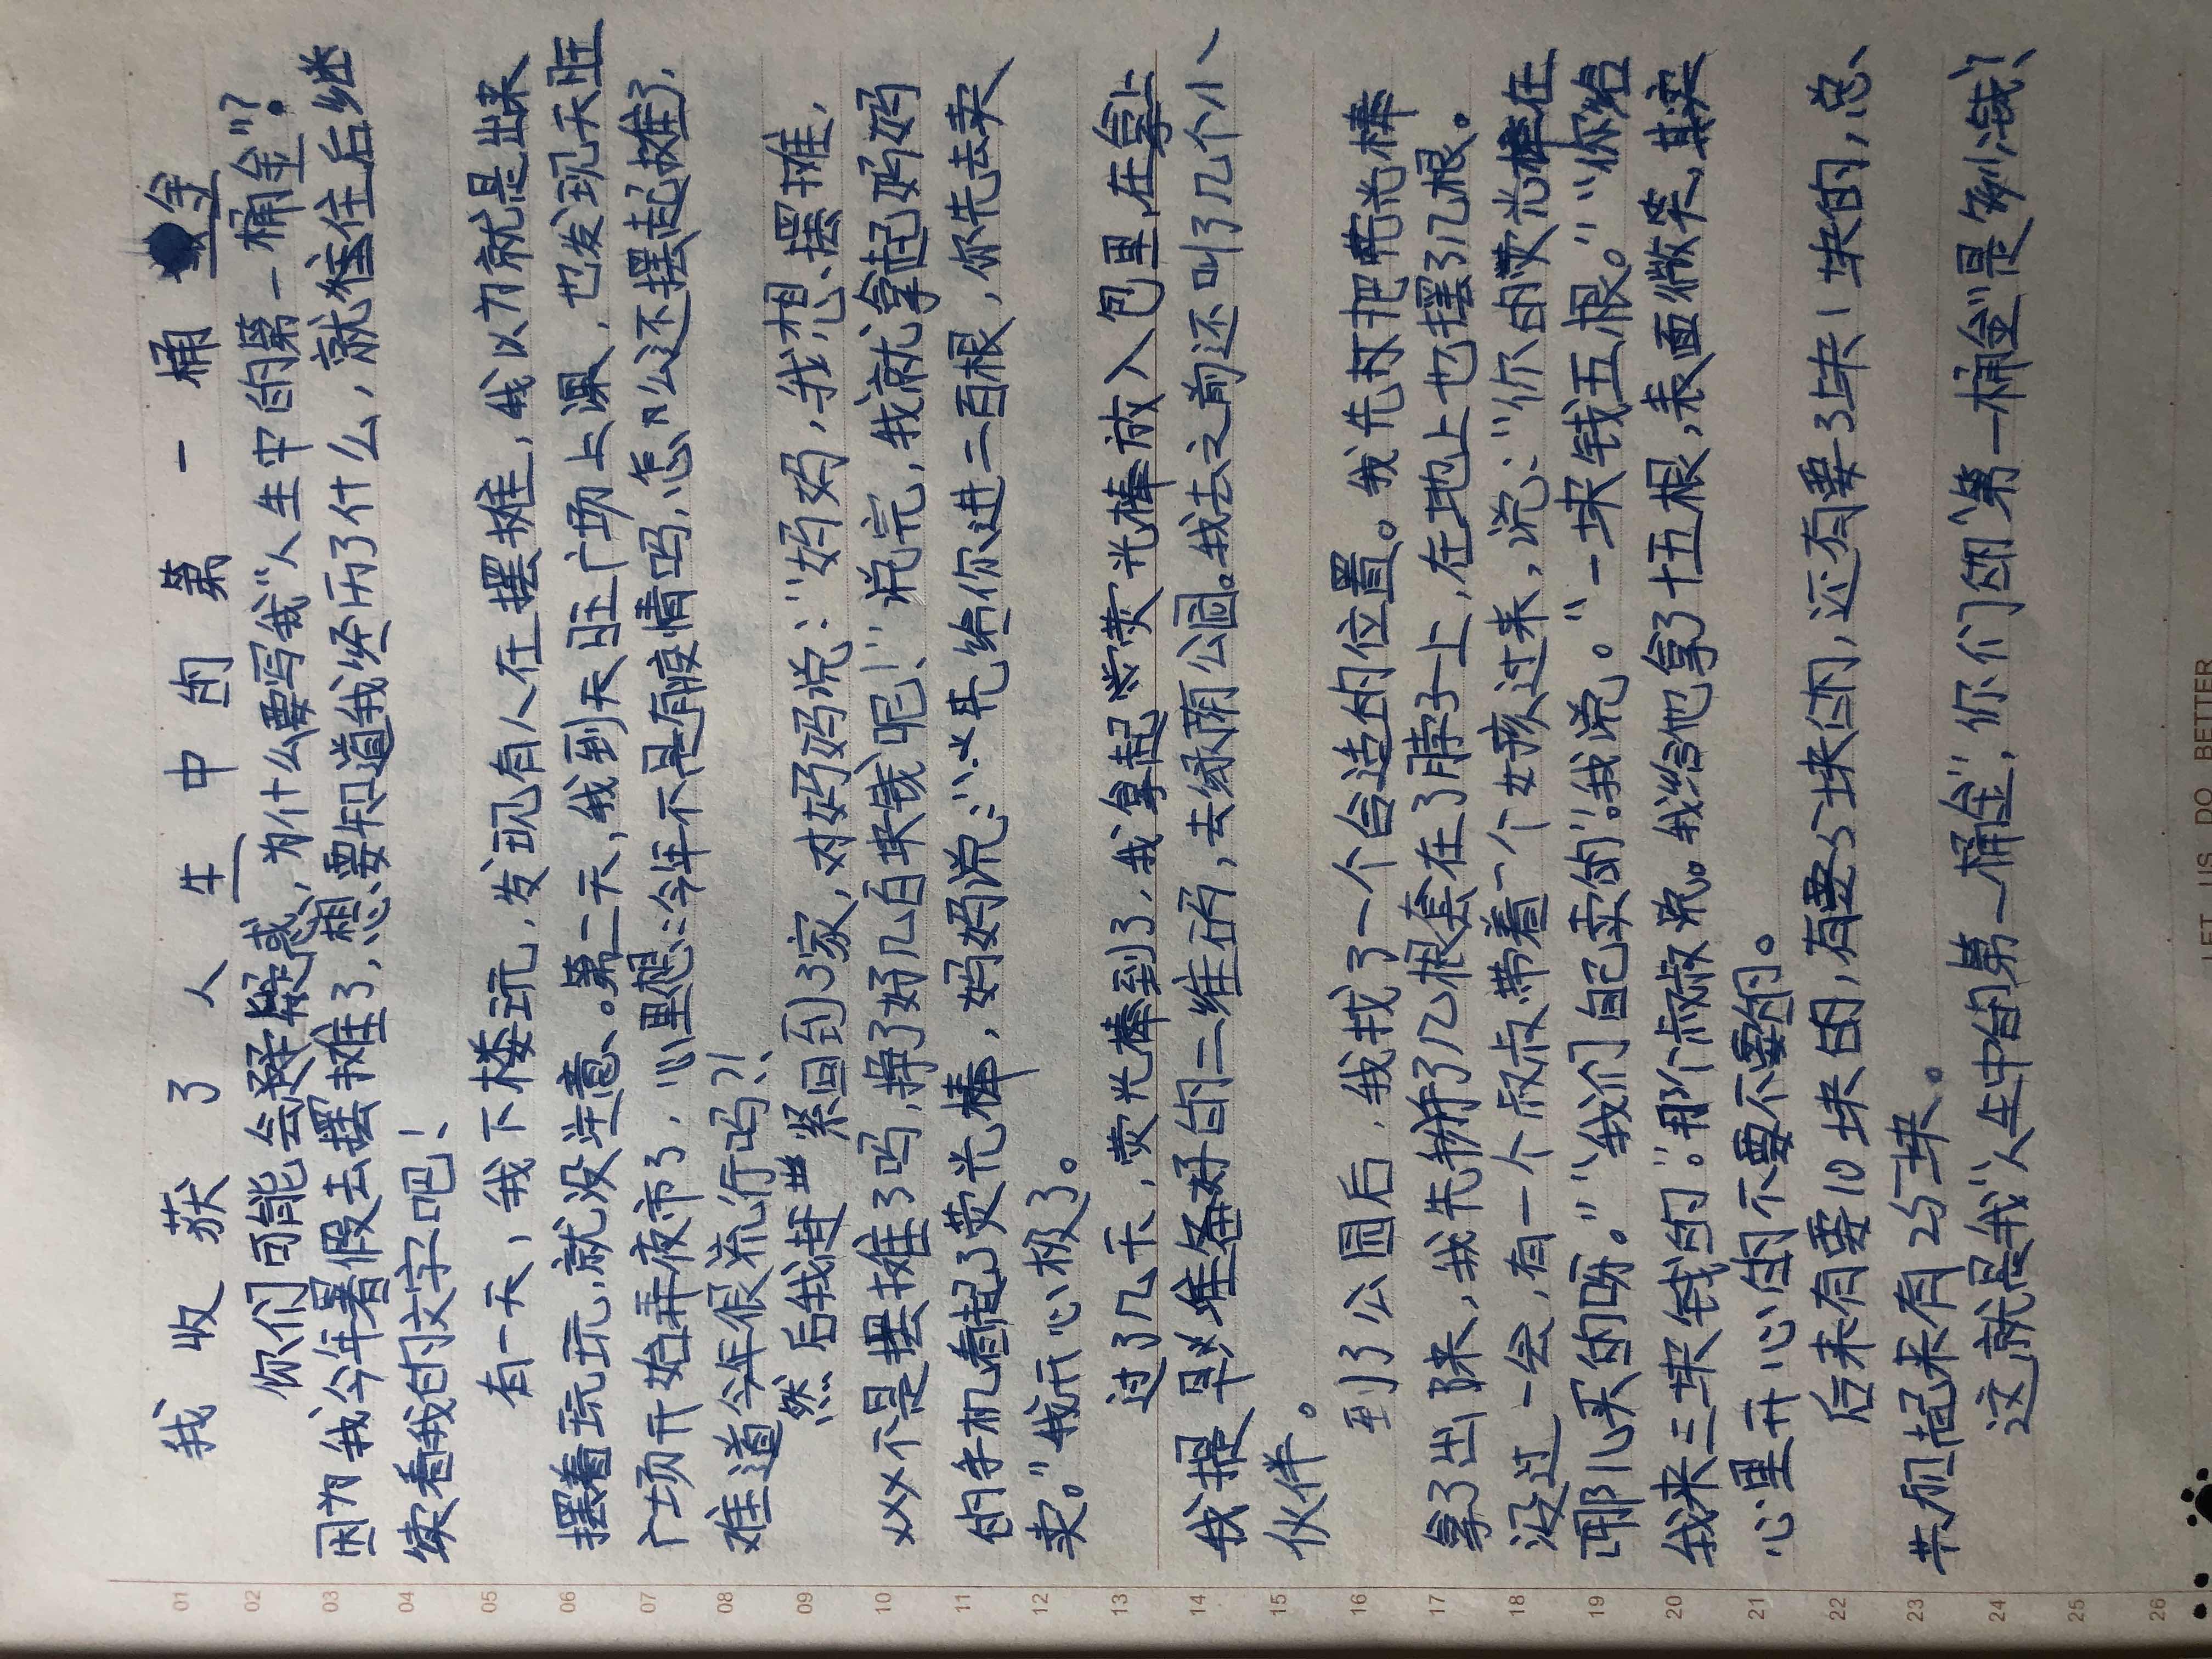 我收获了人生中的第一桶金
你们可能会疑惑,为什么要写我“人生中的第一桶金”?
因为我今年暑假去摆摊了,想要知道我经历了什么,就往后继
续看我的文字吧!
有一天,我下楼玩,发现有人在摆摊,我以为就是出来
摆着玩玩,就没注意、。第二天,我到天旺广场上课,也发现天旺
广场开始弄夜市了,心里想:今年不是有疫情吗,怎么还摆起摊了,
难道今年很流行吗?!
然后我赶紧回到了家,对妈妈说:“妈妈,我想摆摊,
不是摆摊了吗,挣了好几百块钱呢!”说完,我就拿起妈妈
的手机看起了荧光棒,妈妈说:“先给你进二百根,你先去卖
卖。”我开心极了。
过了几天,荧光棒到了,我拿起荧光棒放入包里,在拿上
我提早准备好的二维码,去绿荫公园。我去之前还叫了几个小
伙伴。
到了公园后,我找了一个合适的位置。我先把荧光棒
拿了出来,我先掰了几根套在了脖子上,在地上也摆了几根。
没过一会,有一个叔叔带着一个女孩过来,说:“你的荧光棒在
哪儿买的呀。”“我们自己卖的”。我说。“一块钱五根。”“你给
我来三块钱的。”那个叔叔说。我给他拿了十五根,表面微笑,其实
心里开心的不要不要的。
后来有要10块的,有要5块的,还有要3块1块的,总、
共加起来有25块。
这就是我“人生中的第一桶金”,你们的“第一桶金”是多少钱?
LET US DO BETTER
01
02
03
04
05
06
07
08
09
10
11
12
13
14
15
16
17
18
19
20
21
22
23
24
25
26